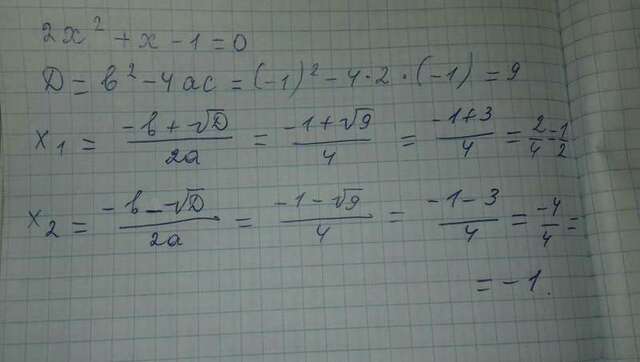 2x² + x - 1 = 0
D = b² - 4ac = (-1)² - 4·2·(-1) = 9
x₁ = (-b + √D)/(2a) = (-1 + √9)/4 = (-1+3)/4 = 2/4 = 1/2
x₂ = (-b - √D)/(2a) = (-1 - √9)/4 = (-1-3)/4 = -4/4 =
= -1.